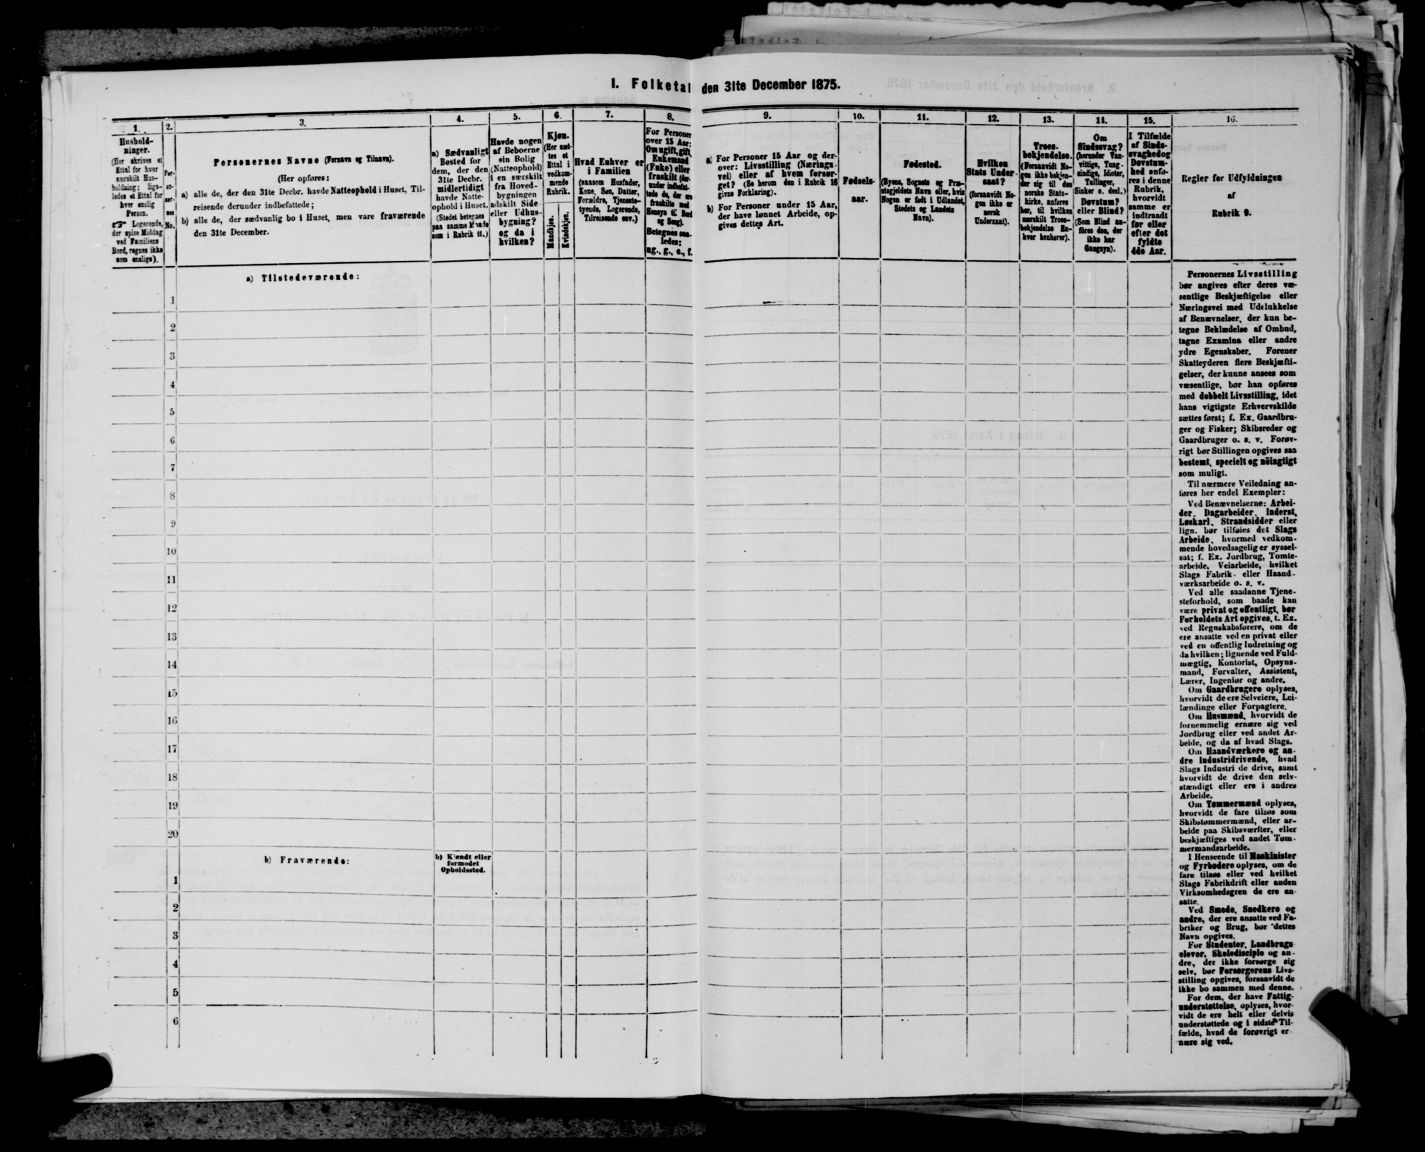 I. Folketal den 31te December 1875.
1.
Hushold-
ninger.
(Her skrives et
Ettal for hver
særskilt Hus-
holdning; lige-
ledes et Ettal for
hver enslig
Person.
Logerende,
der spise Middag
ved Familiens
Bord, regnes ikke
som enslige).
2.
Per-
so-
ner-
nes
No.
3.
Personernes Navne (Fornavn og Tilnavn).
(Her opføres:
a) alle de, der den 31te Decbr. havde Natteophold i Huset, Til-
reisende derunder indbefattede;
b) alle de, der sædvanlig bo i Huset, men vare fraværende
den 31te December.
4.
a) Sædvanligt
Bosted for
dem, der den
31te Decbr.
midlertidigt
havde Natte-
ophold i Huset.
(Stedet betegnes
paa samme Maade
som i Rubrik 11.)
5.
Havde nogen
af Beboerne
sin Bolig
(Natteophold)
i en særskilt
fra Hoved-
bygningen
adskilt Side
eller Udhus-
bygning?
og da i
hvilken?
6.
Kjøn.
(Her sæt-
tes et
Ettal i
vedkom-
mende
Rubrik.
Mandkjøn.
Kvindekjøn.
7.
Hvad Enhver er
i Familien
(saasom Husfader,
Kone, Søn, Datter,
Forældre, Tjeneste-
tyende, Logerende,
Tilreisende osv.)
8.
For Personer
over 15 Aar:
Om ugift, gift,
Enkemand
(Enke) eller
fraskilt (der-
under indbefat-
tede de, der ere
fraskilte med
Hensyn til Bord
og Seng).
Betegnes saa-
ledes:
ug., g., e., f.
9.
a) For Personer 15 Aar og der-
over: Livsstilling (Nærings-
vei) eller af hvem forsør-
get? (Se herom den i Rubrik 16
givne Forklaring).
b) For Personer under 15 Aar,
der have lønnet Arbeide, op-
gives dettes Art.
10.
Fødsels-
aar.
11.
Fødested.
(Byens, Sognets og Præ-
stegjeldets Navn eller, hvis
Nogen er født i Udlandet,
Stedets og Landets
Navn).
12.
Hvilken
Stats Under-
saat?
(forsaavidt No-
gen ikke er
norsk
Undersaat).
13.
Troes-
bekjendelse.
(Forsaavidt No-
gen ikke bekjen-
der sig til den
norske Stats-
kirke, anføres
her, til hvilken
særskilt Troes-
bekjendelse En-
hver henhører).
11.
Om
Sindssvag?
(herunder Van-
vittige, Tung-
sindige, Idioter,
Tullinger,
Sinker o. desl.)
Døvstum?
eller Blind?
(Som Blind an-
føres den, der
ikke har
Gangsyn).
15.
I Tilfælde
af Sinds-
svaghed og
Døvstum-
hed anfø-
res i denne
Rubrik,
hvorvidt
samme er
indtraadt
før eller
efter det
fyldte
4de Aar.
16.
Regler for Udfyldningen
af
Rubrik 9.
a) Tilstedeværende:
1
2
3
4
5
6
7
8
9
10
11
12
13
14
15
16
17
18
19
20
b) Fraværende:
b) Kjendt eller
formodet
Opholdssted.
1
2
3
4
5
6
Personernes Livsstilling
bør angives efter deres væ-
sentlige Beskjæftigelse eller
Næringsvei med Udelukkelse
af Benævnelser, der kun be-
tegne Beklædelse af Ombud,
tagne Examina eller andre
ydre Egenskaber. Forener
Skatteyderen flere Beskjæfti-
gelser, der kunne ansees som
væsentlige, bør han opføres
med dobbelt Livsstilling, idet
hans vigtigste Erhvervskilde
sættes først; f. Ex. Gaardbru-
ger og Fisker; Skibsreder og
Gaardbruger o. s. v. Forøv-
rigt bør Stillingen opgives saa
bestemt, specielt og nøiagtigt
som muligt.
Til nærmere Veiledning an-
føres her endel Exempler:
Ved Benævnelserne: Arbei-
der, Dagarbeider, Inderst,
Løskarl, Strandsidder eller
lign. bør tilføies det Slags
Arbeide, hvormed vedkom-
mende hovedsagelig er syssel-
sat; f. Ex. Jordbrug, Tomte-
arbeide, Veiarbeide, hvilket
Slags Fabrik- eller Haand-
værksarbeide o. s. v.
Ved alle saadanne Tjene-
steforhold, som baade kan
være privat og offentligt, bør
Forholdets Art opgives, t. Ex.
ved Regnskabsførere, om de
ere ansatte ved en privat eller
ved en offentlig Indretning og
da hvilken; lignende ved Fuld-
mægtig, Kontorist, Opsyns-
mand, Forvalter, Assistent,
Lærer, Ingeniør og andre.
Om Gaardbrugere oplyses,
hvorvidt de ere Selveiere, Lei-
lændinge eller Forpagtere.
Om Husmænd, hvorvidt de
fornemmelig ernære sig ved
Jordbrug eller ved andet Ar-
beide, og da af hvad Slags.
Om Haandværkere og an-
dre Industridrivende, hvad
Slags Industri de drive, samt
hvorvidt de drive den selv-
stændigt eller ere i andres
Arbeide.
Om Tømmermænd oplyses,
hvorvidt de fare tilsøs som
Skibstømmermænd, eller ar-
beide paa Skibsværfter, eller
beskjæftiges ved andet Tøm-
mermandsarbeide.
I Henseende til Maskinister
og Fyrbødere oplyses, om de
fare tilsøs eller ved hvilket
Slags Fabrikdrift eller anden
Virksomhedsgren de ere an-
satte.
Ved Smede, Snedkere og
andre, der ere ansatte ved Fa-
briker og Brug, bør dettes
Navn opgives.
For Studenter, Landbrugs
elever, Skoledisciple og an-
dre, der ikke forsørge sig
selv, bør Forsørgerens Livs-
stilling opgives, forsaavidt de
ikke bo sammen med denne.
For dem, der have Fattig-
understøttelse, oplyses, hvor-
vidt de ere helt eller delvis
understøttede og i sidste Til-
fælde, hvad de forøvrigt er-
nære sig ved.